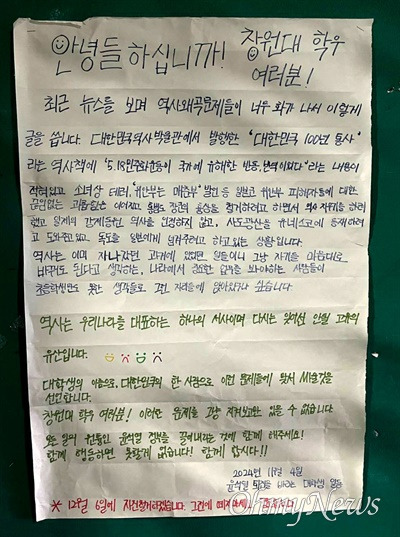 안녕들하십니까! 창원대 학우
여러분!
최근 뉴스를 보며 역사왜곡문제들이 너무 화가 나서 이렇게
글을 씁니다. 대한민국역사박물관에서 발행한 "대한민국 100년 통사"
라는 역사책에 "5.18민주화운동이 국가에 유해한 반동, 반역이었다"라는 내용이
적혀있고 소녀상 테러, "위안부는 매춘부" 발언 등 일본군 위안부 피해자들에 대한
끊임없는 이어지고 홍범도 장군의 흉상을 철거하려고 하면서
했고 일제의 강제동원 역사를 인정하지 않고, 사도광산을 유네스코에 등재하려
고 도와주고있고, 독도를 일본에게 넘겨주려고 하고있는 상황입니다.
역사는 이미 지나갔던 과거에 있었던 일들이니 그냥 자기들 마음대로
바꿔도 된다고 생각하는, 나라에서 중요한 업무를 봐야하는 사람들이
초등학생만도 못한 생각들로 그런 자리들에 앉아있나 싶습니다
역사는 우리나라를 대표하는 하나의 서사이며 다시는 잊어선 안될 고귀한
유산입니다.
대학생의 이름으로, 대한민국의 한 사람으로 이런 문제들에 맞서 싸울것을
선언합니다.
창원대 학우 여러분! 이러한 문제를 그냥 지켜보고만 있을 수 없습니다.
모든 일의 원흉인 윤석열 정권을 끌어내리는 것에 함께 해주세요!
함께 행동하면 못할게 없습니다! 함께 합시다!!
2024년 11월 4일
윤석열 퇴진을 바라는 대학생 일동
* 12월 6일에 자진철거하겠습니다. 그전에 떼지마세요.
OhmyNews